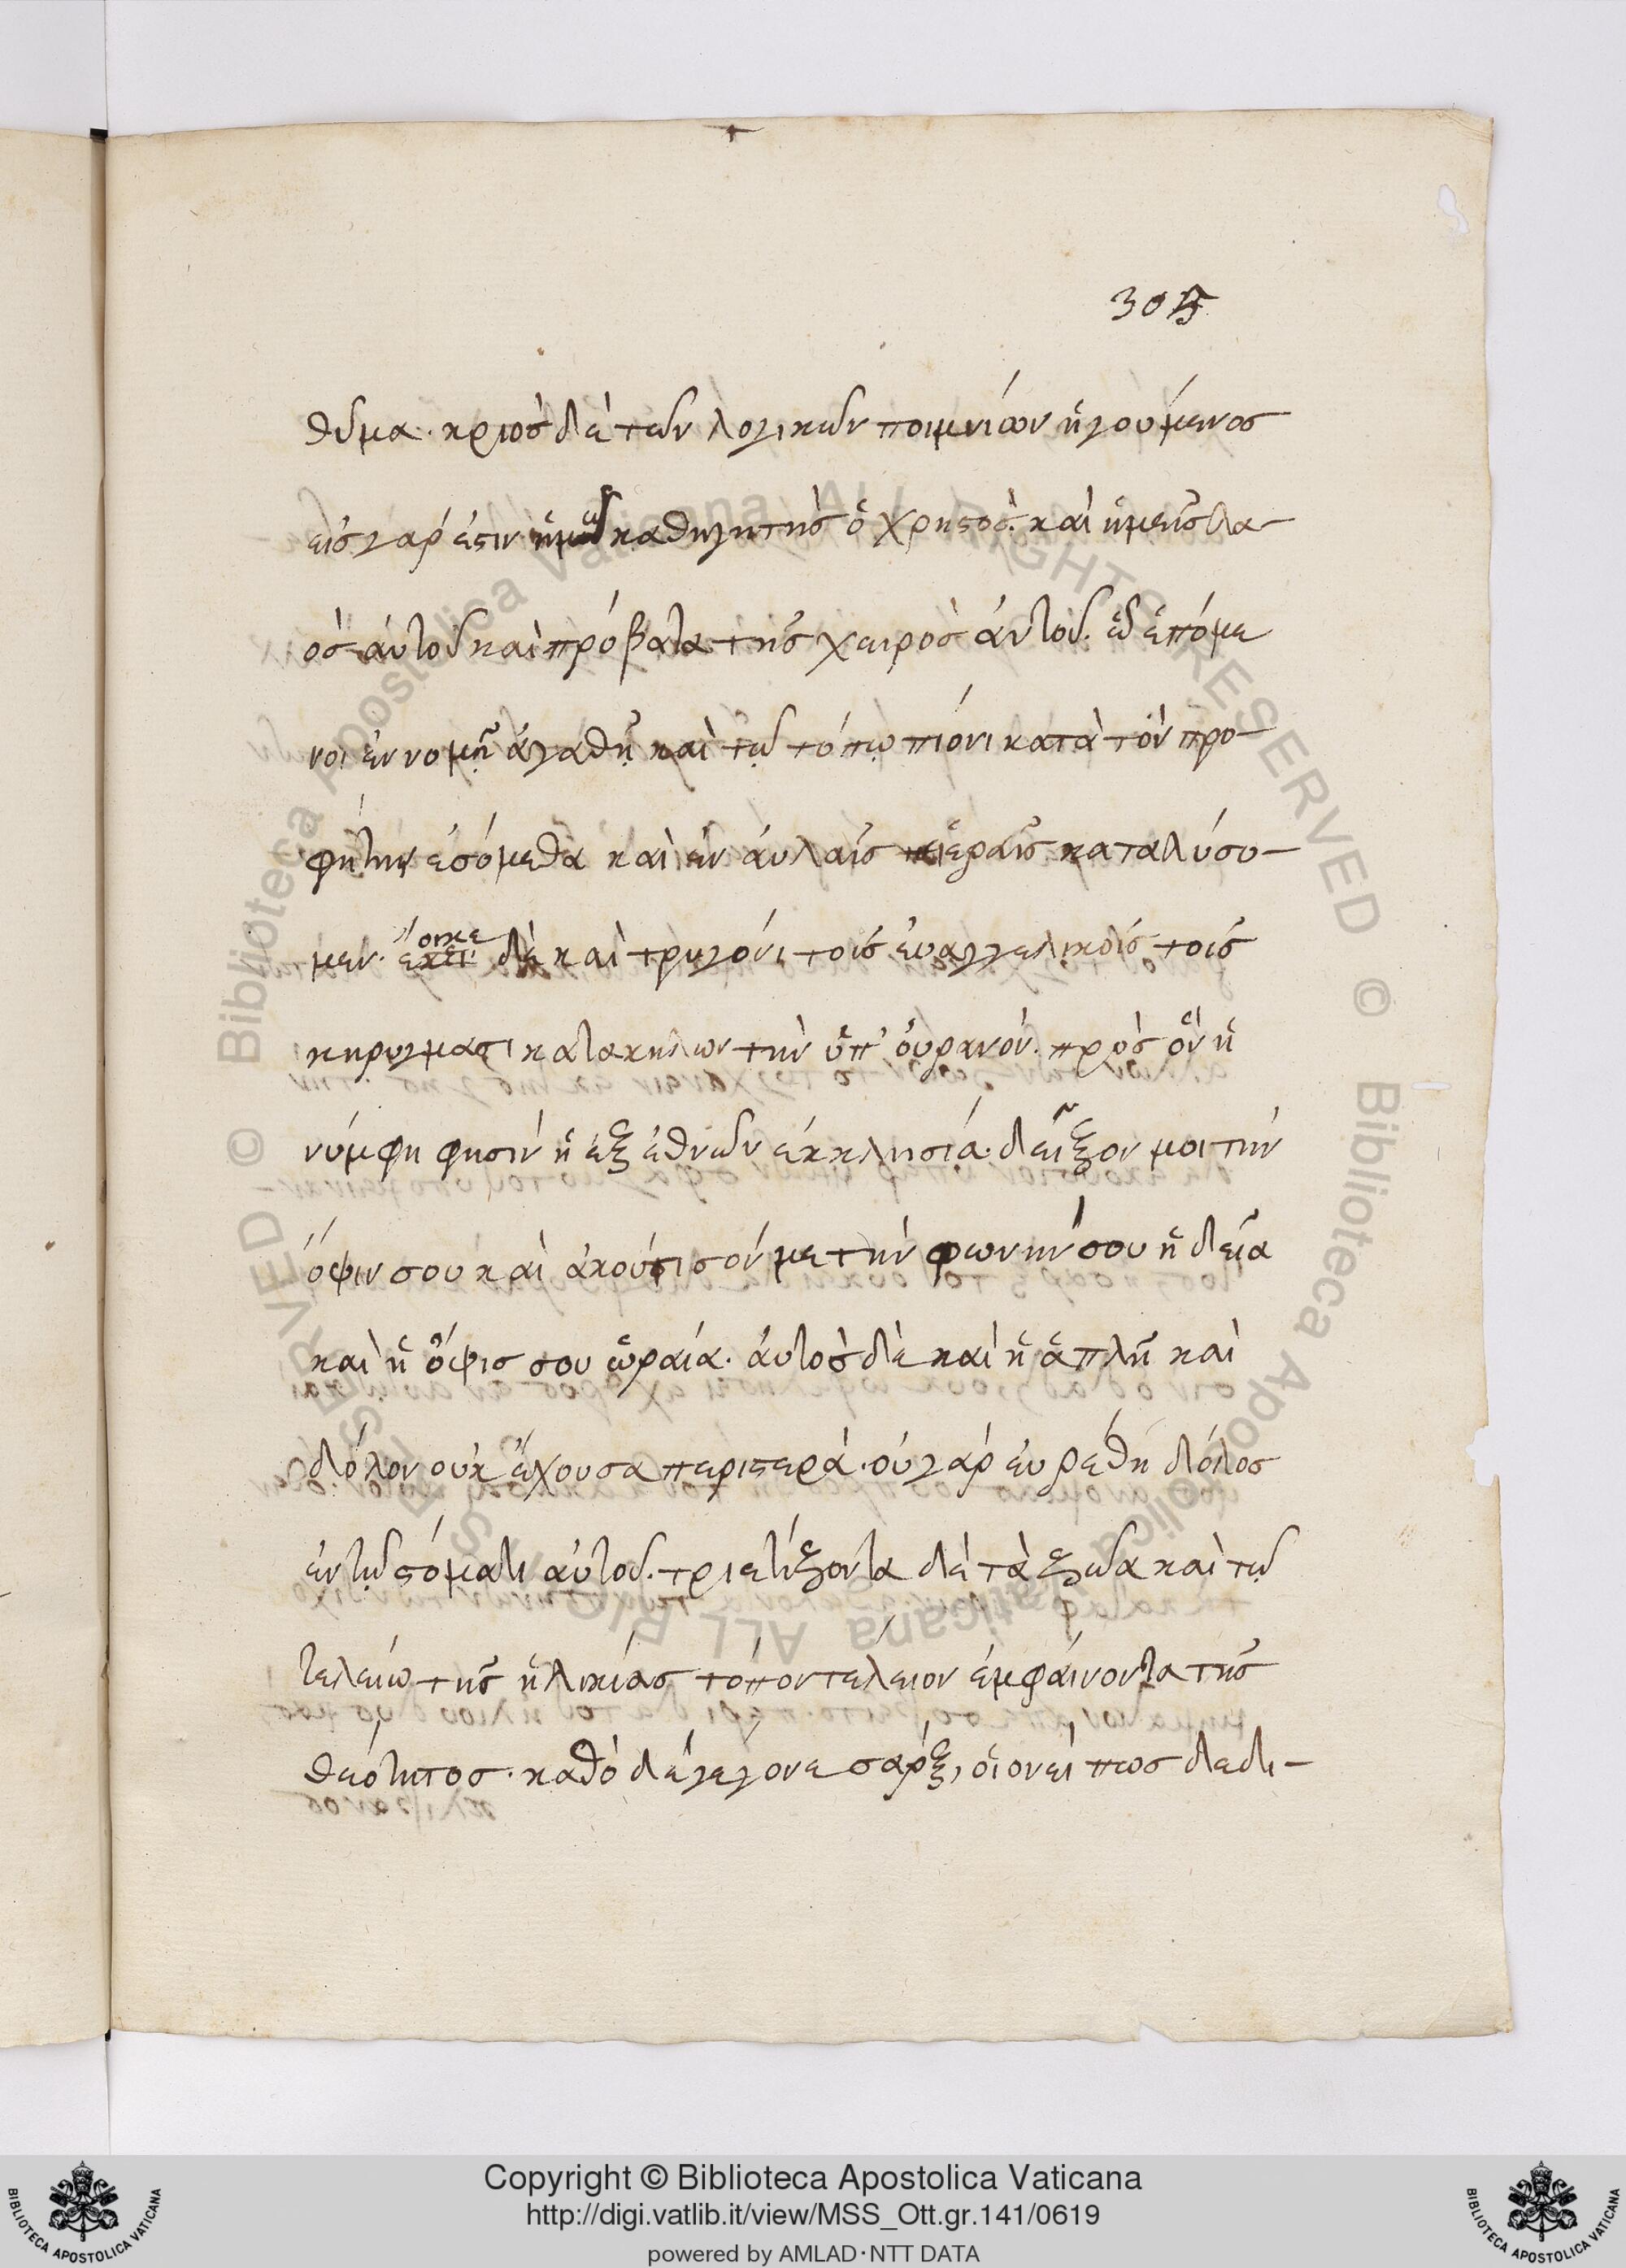 305
θῦμα· κριὸς δὲ τῶν λογικῶν ποιμνίων ἡγούμενος
εἷς γάρ ἐστιν ἡμῶν καθηγητὴς ὁ χρηστός· καὶ ἡμεῖς λα-
ὸς αὐτοῦ καὶ πρόβατα τῆς χειρὸς αὐτοῦ. ᾧ ἑπόμε
νοι ἐν νομῇ ἀγαθῇ καὶ τῷ τόπῳ πίονι κατὰ τὸν προ-
φήτην ἐσόμεθα καὶ ἐν αὐλαῖς ἱεραῖς καταλύσο-
μεν· ἔοικε δὲ καὶ τρυγόνι τοῖς εὐαγγελικοῖς τοῖς
κηρύγμασι κατακηλῶν τὴν ὑπ' οὐρανόν. πρὸς ὃν ἡ
νύμφη φησὶν ἡ ἐξ ἐθνῶν ἐκκλησία· δεῖξον μοι τὴν
ὄψιν σου καὶ ἀκούτισόν με τὴν φωνήν σου ἡδεῖα
καὶ ἡ ὄψις σου ὡραία. αὐτὸς δὲ καὶ ἡ ἁπλῆ καὶ
δόλον οὐκ ἔχουσα περιστερά· οὐ γὰρ εὑρέθη δόλος
ἐν τῷ στόματι αὐτοῦ. τριετίζοντα δὲ τὰ ζῶα καὶ τῷ
τελείω τῆς ἡλικίας τόπον τέλειον ἐμφαίνοντα τῆς
θεότητος· καθὸ δὲ γέγονε σάρξ, οἱονεί πως δεδι-
Copyright © Biblioteca Apostolica Vaticana
http://digi.vatlib.it/view/MSS_Ott.gr.141/0619
powered by AMLAD·NTT DATA
BIBLIOTECA APOSTOLICA VATICANA
BIBLIOTECA APOSTOLICA VATICANA
© Biblioteca Apostolica Vaticana ALL RIGHTS RESERVED © Biblioteca Apostolica Vaticana ALL RIGHTS RESERVED